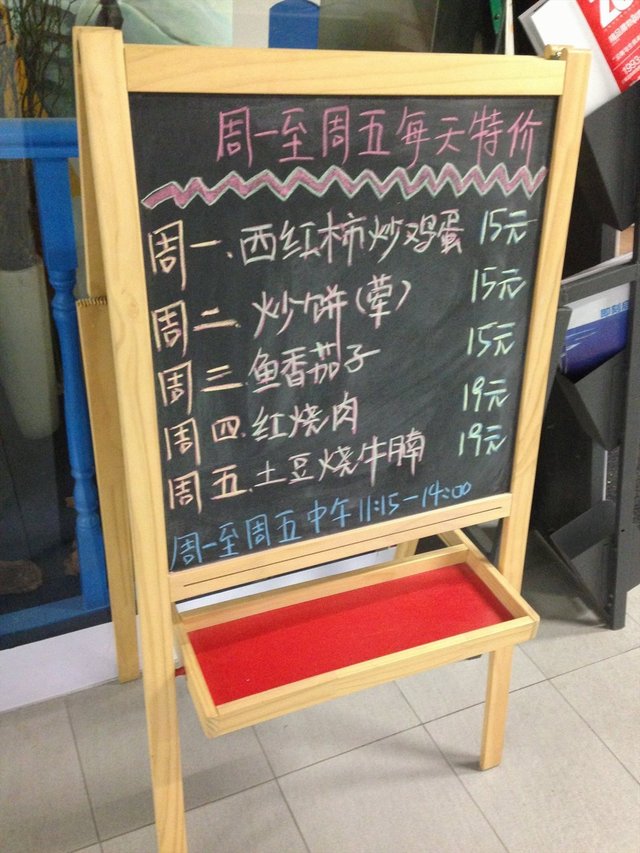 周一至周五每天特价
周一.西红柿炒鸡蛋 15元
周二.炒饼(荤) 15元
周三.鱼香茄子 15元
周四.红烧肉 19元
周五.土豆烧牛腩 19元
周一至周五中午11:15-14:00
1993